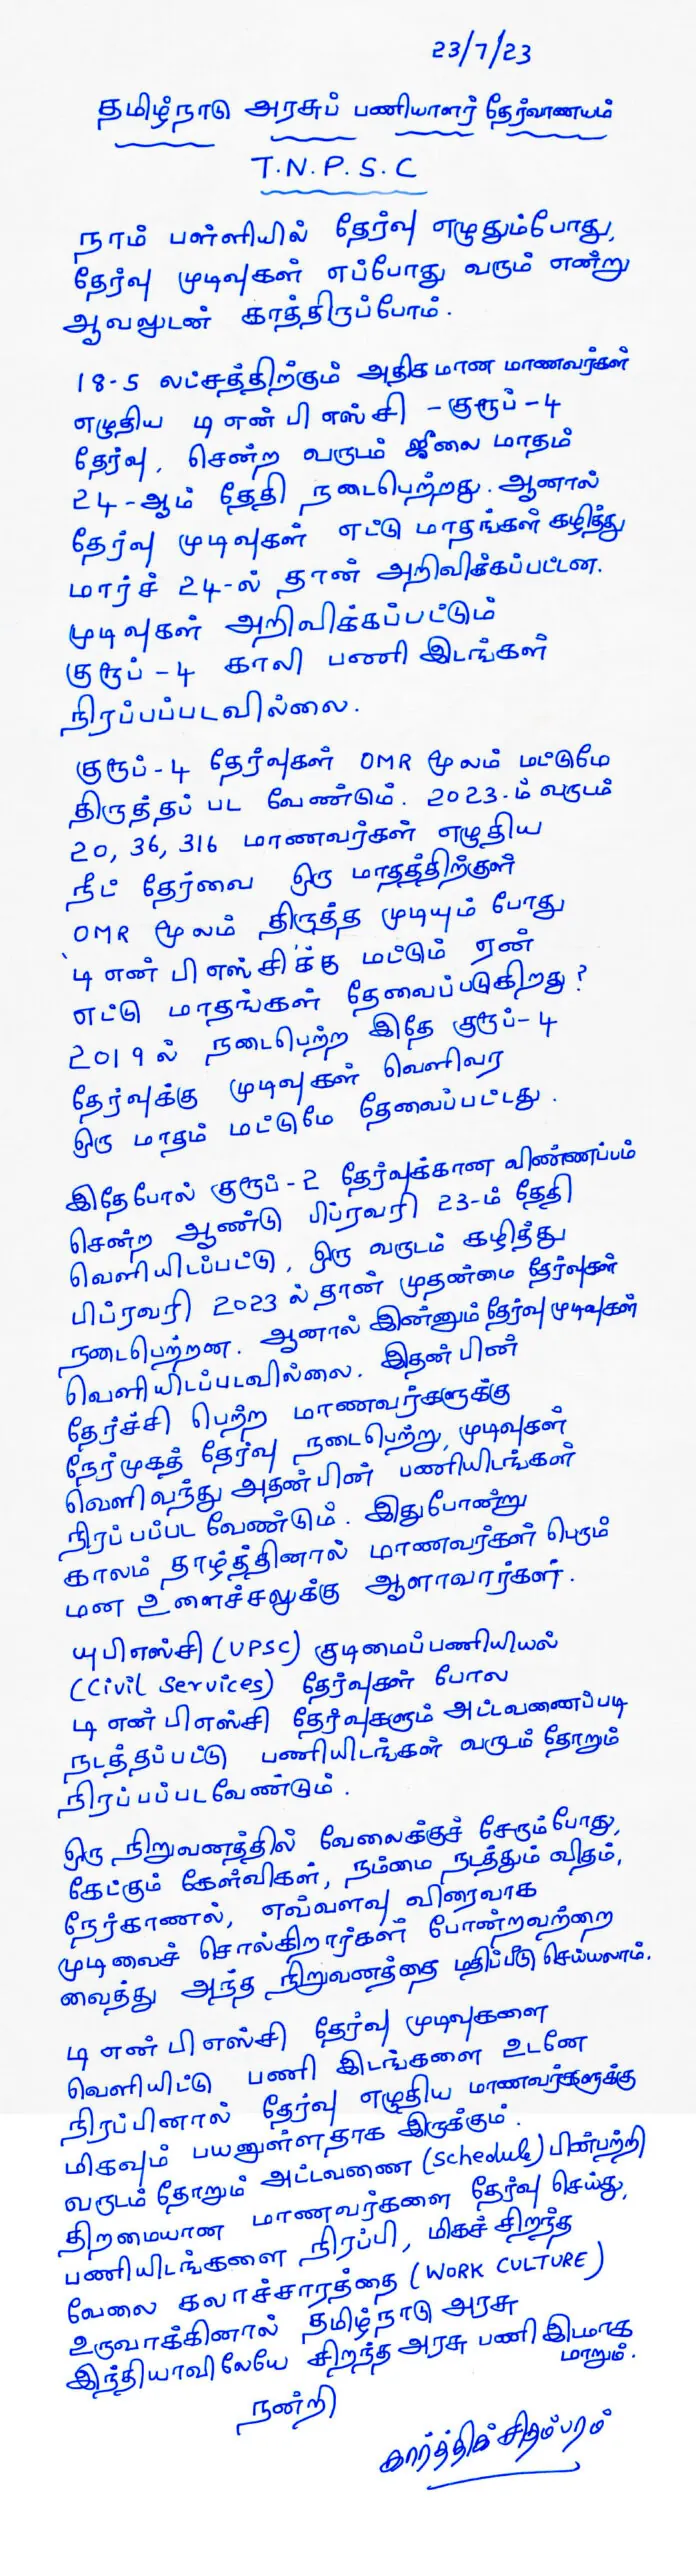 23/7/23
தமிழ்நாடு அரசுப் பணியாளர் தேர்வாணயம்
T.N.P.S.C
நாம் பள்ளியில் தேர்வு எழுதும்போது,
தேர்வு முடிவுகள் எப்போது வரும் என்று
ஆவலுடன் காத்திருப்போம்.
18-5 லட்சத்திற்கும் அதிகமான மாணவர்கள்
எழுதிய டி என் பி எஸ் சி - குரூப் - 4
தேர்வு, சென்ற வருடம் ஜீலை மாதம்
24-ஆம் தேதி நடைபெற்றது. ஆனால்
தேர்வு முடிவுகள் எட்டு மாதங்கள் கழித்து
மார்ச் 24-ல் தான் அறிவிக்கப்பட்டன.
முடிவுகள் அறிவிக்கப்பட்டும்
குரூப் - 4 காலி பணி இடங்கள்
நிரப்பப்படவில்லை.
குரூப் - 4 தேர்வுகள் OMR மூலம் மட்டுமே
திருத்தப் பட வேண்டும். 2023-ம் வருடம்
20, 36, 316 மாணவர்கள் எழுதிய
நீட் தேர்வை ஒரு மாதத்திற்குள்
OMR மூலம் திருத்த முடியும் போது
'டி என் பி எஸ் சி'க்கு மட்டும் ஏன்
எட்டு மாதங்கள் தேவைப்படுகிறது?
2019 ல் நடைபெற்ற இதே குரூப் - 4
தேர்வுக்கு முடிவுகள் வெளிவர
ஒரு மாதம் மட்டுமே தேவைப்பட்டது.
இதேபோல் குரூப் - 2 தேர்வுக்கான விண்ணப்பம்
சென்ற ஆண்டு பிப்ரவரி 23-ம் தேதி
வெளியிடப்பட்டு, ஒரு வருடம் கழித்து
பிப்ரவரி 2023 ல் தான் முதன்மை தேர்வுகள்
நடைபெற்றன. ஆனால் இன்னும் தேர்வு முடிவுகள்
வெளியிடப்படவில்லை. இதன் பின்
தேர்ச்சி பெற்ற மாணவர்களுக்கு
நேர்முகத் தேர்வு நடைபெற்று, முடிவுகள்
வெளிவந்து அதன்பின் பணியிடங்கள்
நிரப்பப்பட வேண்டும். இதுபோன்று
காலம் தாழ்த்தினால் மாணவர்கள் பெரும்
மன உளைச்சலுக்கு ஆளாவார்கள்.
யுபிஎஸ்சி (UPSC) குடிமைப்பணியியல்
(Civil Services) தேர்வுகள் போல
டி என் பிஎஸ்சி தேர்வுகளும் அட்டவணைப்படி
நடத்தப்பட்டு பணியிடங்கள் வருடம் தோறும்
நிரப்பப்படவேண்டும்.
ஒரு நிறுவனத்தில் வேலைக்குச் சேரும்போது,
கேட்கும் கேள்விகள், நம்மை நடத்தும் விதம்,
நேர்காணல், எவ்வளவு விரைவாக
முடிவைச் சொல்கிறார்கள் போன்றவற்றை
வைத்து அந்த நிறுவனத்தை மதிப்பீடு செய்யலாம்.
டி என் பி எஸ்சி தேர்வு முடிவுகளை
வெளியிட்டு பணி இடங்களை உடனே
நிரப்பினால் தேர்வு எழுதிய மாணவர்களுக்கு
மிகவும் பயனுள்ளதாக இருக்கும்.
வருடம் தோறும் அட்டவணை (Schedule) பின்பற்றி
திறமையான மாணவர்களை தேர்வு செய்து,
பணியிடங்களை நிரப்பி, மிகச் சிறந்த
வேலை கலாச்சாரத்தை (WORK CULTURE)
உருவாக்கினால் தமிழ்நாடு அரசு
இந்தியாவிலேயே சிறந்த அரசு பணி இடமாக
மாறும்.
நன்றி
கார்த்திக் சிதம்பரம்